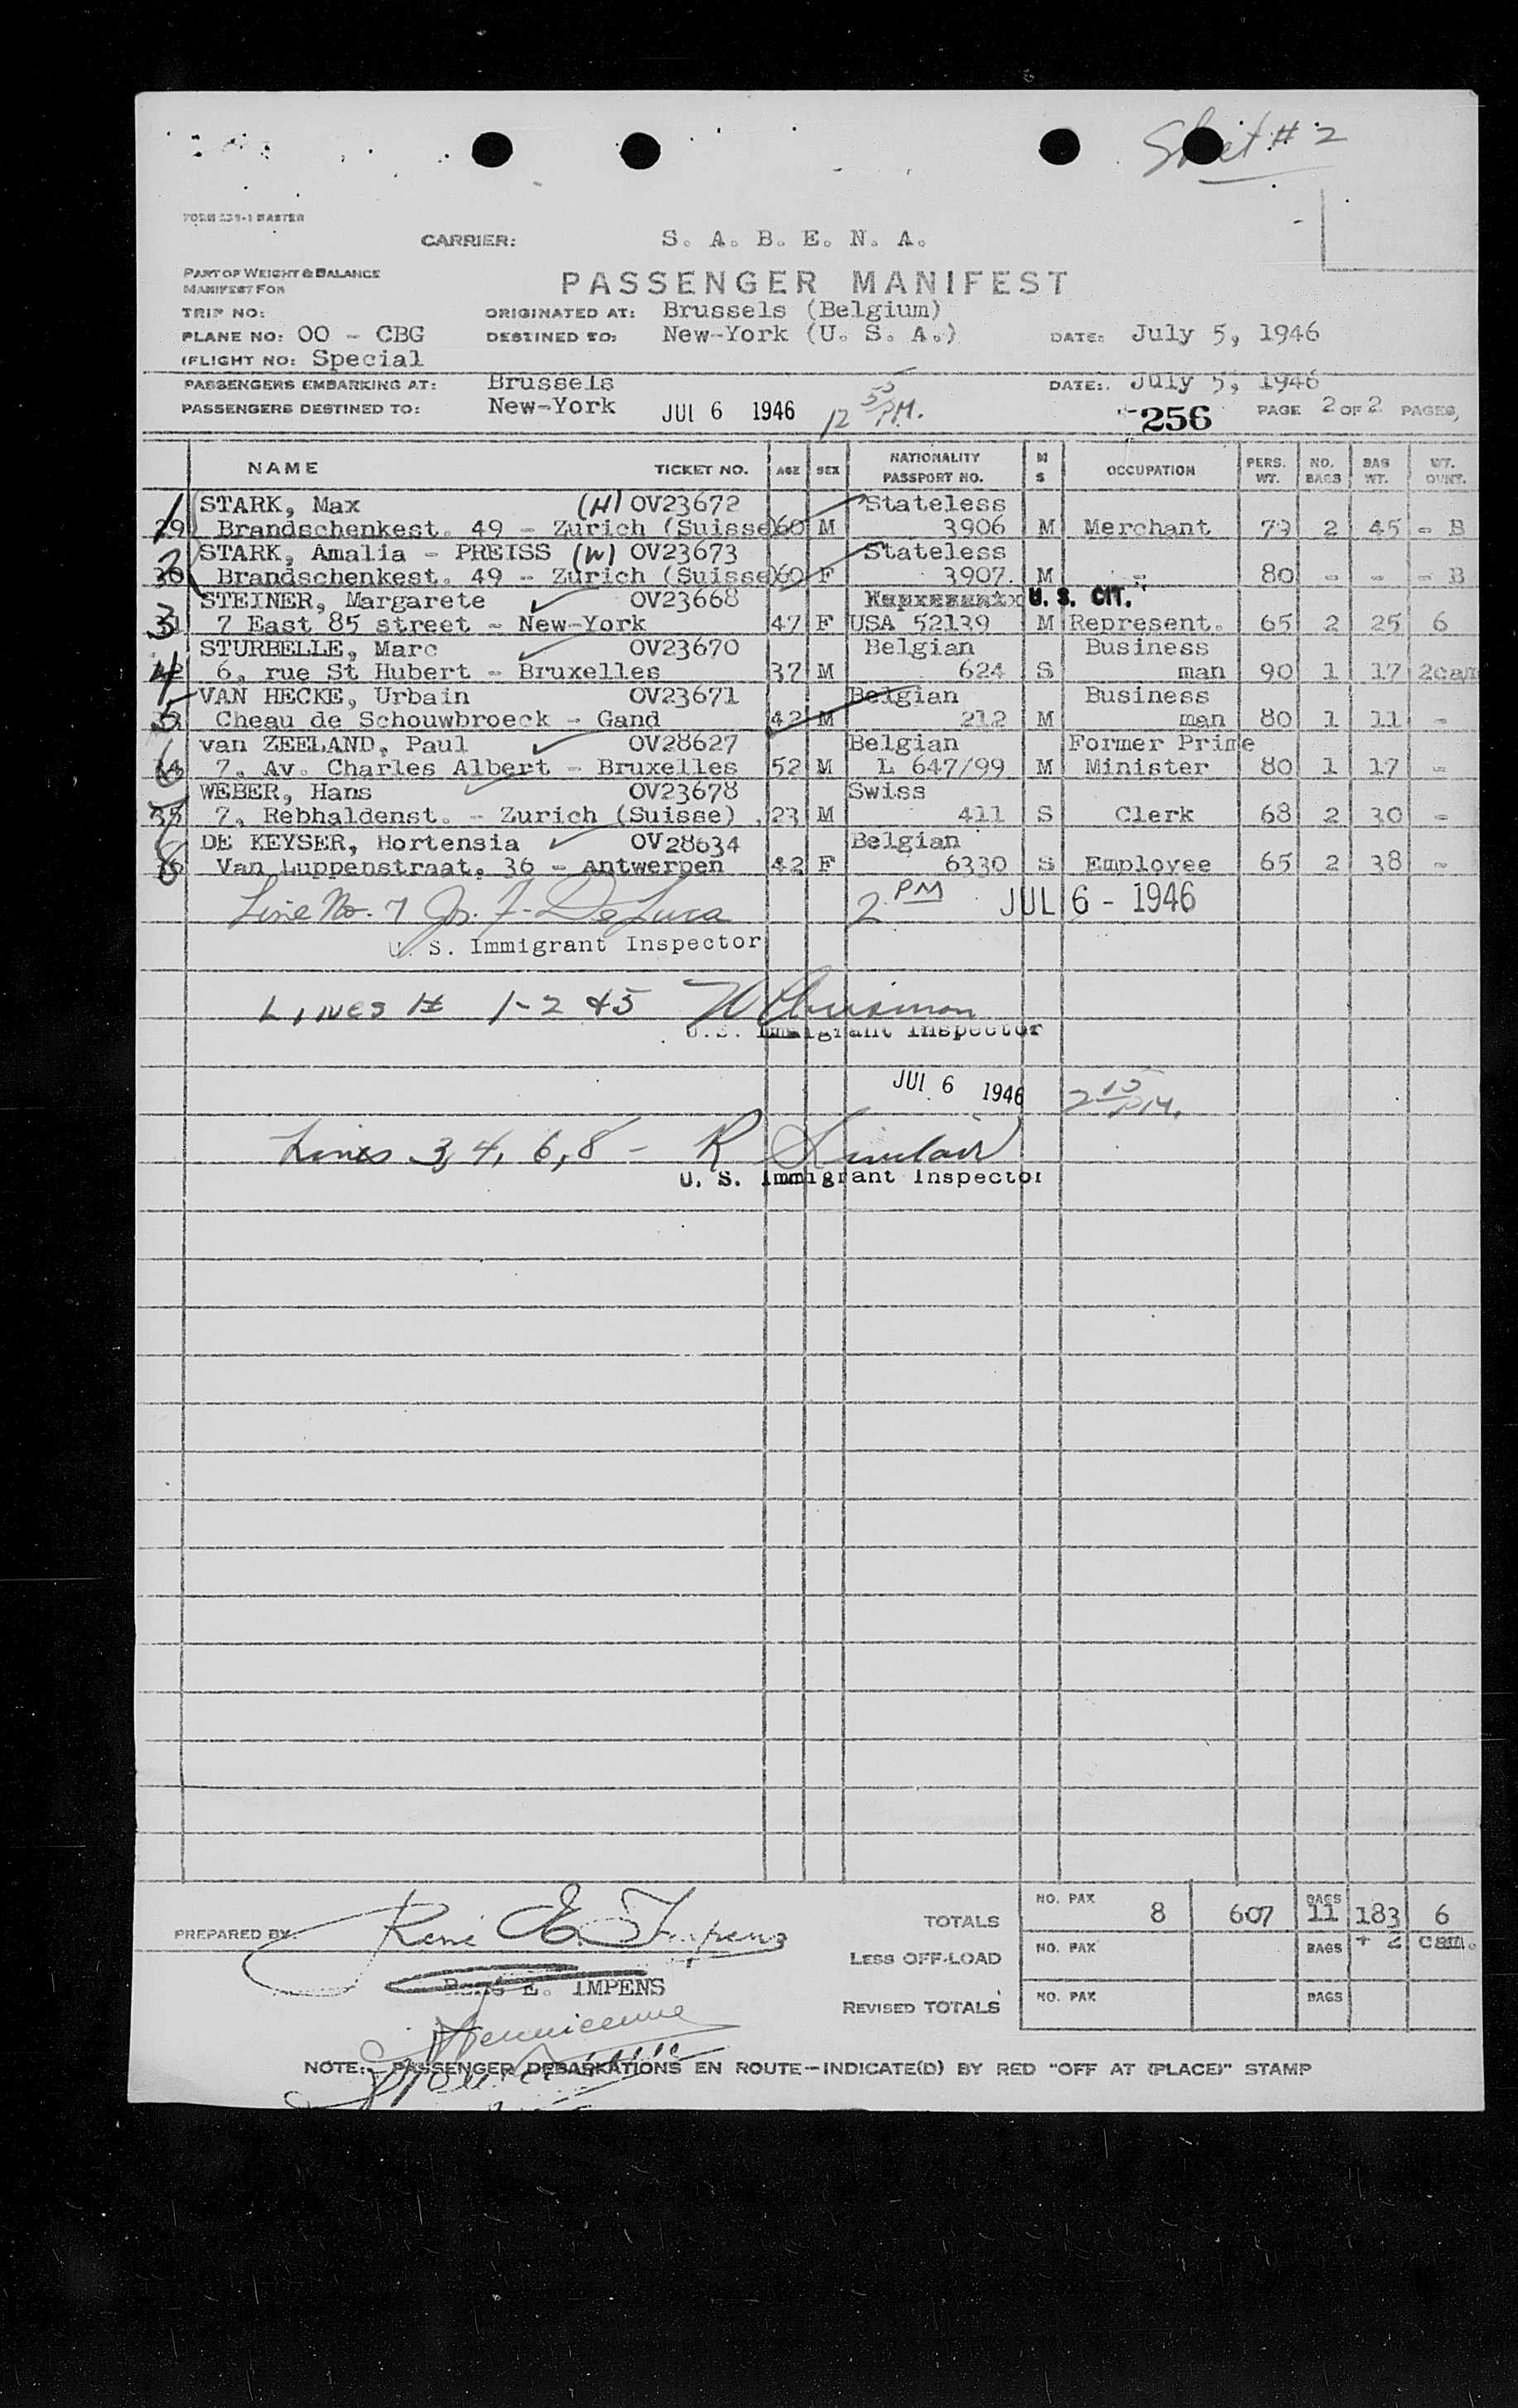 Sheet # 2
FORM 239-1 MASTER
CARRIER: S. A. B. E. N. A.
PART OF WEIGHT & BALANCE
MANIFEST FOR
PASSENGER MANIFEST
TRIP NO: ORIGINATED AT: Brussels (Belgium)
PLANE NO: OO - CBG DESTINED TO: New-York (U. S. A.) DATE: July 5, 1946
(FLIGHT NO: Special
PASSENGERS EMBARKING AT: Brussels DATE: July 5, 1946
PASSENGERS DESTINED TO: New-York JUL 6 1946 12 55 PM. 256 PAGE 2 OF 2 PAGES
NAME TICKET NO. AGE SEX NATIONALITY PASSPORT NO. M S OCCUPATION PERS. WT. NO. BAGS BAG WT. WT. OVNT.
1 STARK, Max (H) OV23672 Stateless
29 Brandschenkest. 49 - Zurich (Suisse) 60 M 3906 M Merchant 79 2 45 - B
2 STARK, Amalia - PREISS (W) OV23673 Stateless
30 Brandschenkest. 49 - Zurich (Suisse) 60 F 3907. M - 80 - - - B
STEINER, Margarete OV23668 U. S. CIT.
3 7 East 85 street - New-York 47 F USA 52139 M Represent. 65 2 25 6
STURBELLE, Marc OV23670 Belgian Business
4 6, rue St Hubert - Bruxelles 37 M 624 S man 90 1 17 2cam
VAN HECKE, Urbain OV23671 Belgian Business
5 Cheau de Schouwbroeck - Gand 42 M 212 M man 80 1 11 -
van ZEELAND, Paul OV28627 Belgian Former Prime
6 7, Av. Charles Albert - Bruxelles 52 M L 647/99 M Minister 80 1 17 -
WEBER, Hans OV23678 Swiss
7 35 7, Rebhaldenst. - Zurich (Suisse) 23 M 411 S Clerk 68 2 30 -
DE KEYSER, Hortensia OV28634 Belgian
8 Van Luppenstraat, 36 - Antwerpen 42 F 6330 S Employee 65 2 38 -
Line No. 7 Jos. F. DeLuca 2 PM JUL 6 - 1946
U. S. Immigrant Inspector
LINES # 1-2 & 5
U.S. Immigrant Inspector
JUL 6 1946 2 15 P.M.
Lines 3, 4, 6, 8 - R Sinclair
U. S. Immigrant Inspector
PREPARED BY: René E. Impens
René E. IMPENS
TOTALS NO. PAX 8 607 BAGS 11 183 6
LESS OFF-LOAD NO. PAX BAGS + 2 cam.
REVISED TOTALS NO. PAX BAGS
NOTE:- PASSENGER DEBARKATIONS EN ROUTE-INDICATE(D) BY RED "OFF AT (PLACE)" STAMP